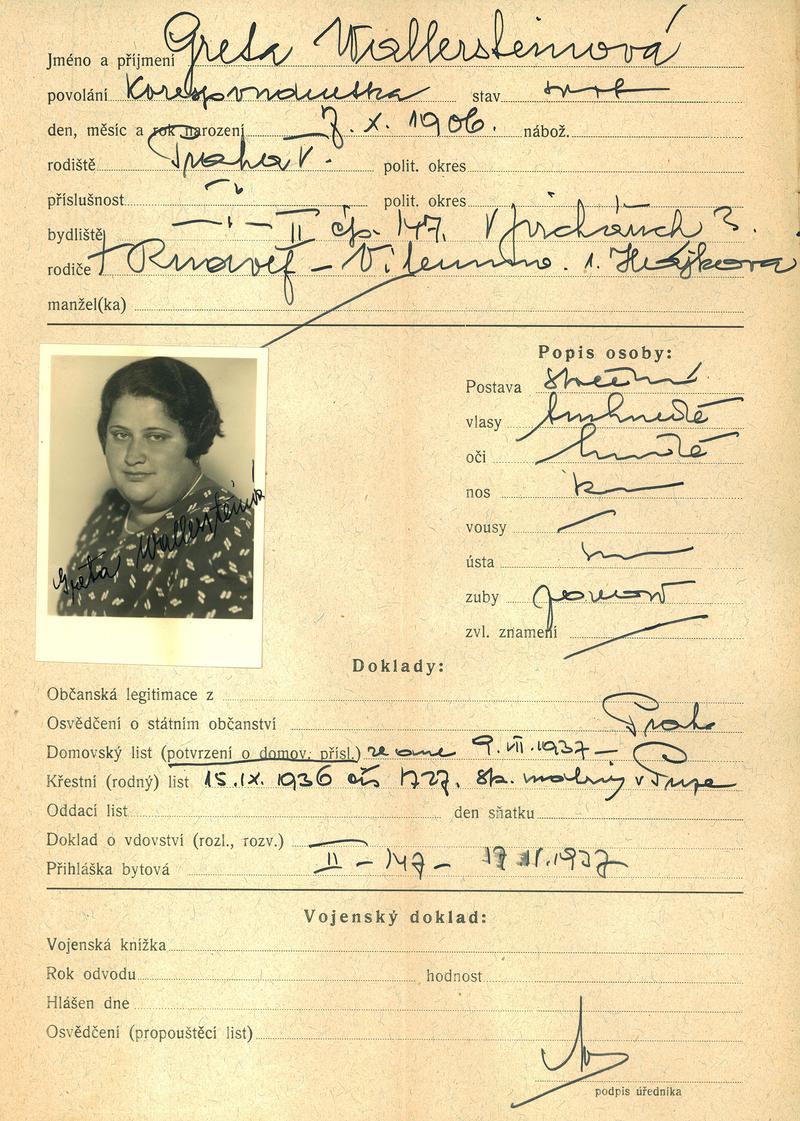 Jméno a příjmení Greta Wallersteinová
povolání korespondentka stav
den, měsíc a rok narození 7. X. 1906. nábož.
rodiště Praha V. polit. okres
příslušnost polit. okres
bydliště II čp. 147. V Jirchářích 3.
rodiče † Rudolf – Vilemína r. Hájkova
manžel(ka)
Popis osoby:
Postava střední
vlasy tmhnědé
oči hnědé
nos
vousy
ústa
zuby
zvl. znamení
Greta Wallersteinová
Doklady:
Občanská legitimace z
Osvědčení o státním občanství Praha
Domovský list (potvrzení o domov. přísl.) ze dne 9. VII. 1937 –
Křestní (rodný) list 15. IX. 1936 čís 1727. v Praze
Oddací list den sňatku
Doklad o vdovství (rozl., rozv.)
Přihláška bytová II – 147 – 17 II. 1937
Vojenský doklad:
Vojenská knížka
Rok odvodu hodnost
Hlášen dne
Osvědčení (propouštěcí list)
podpis úředníka